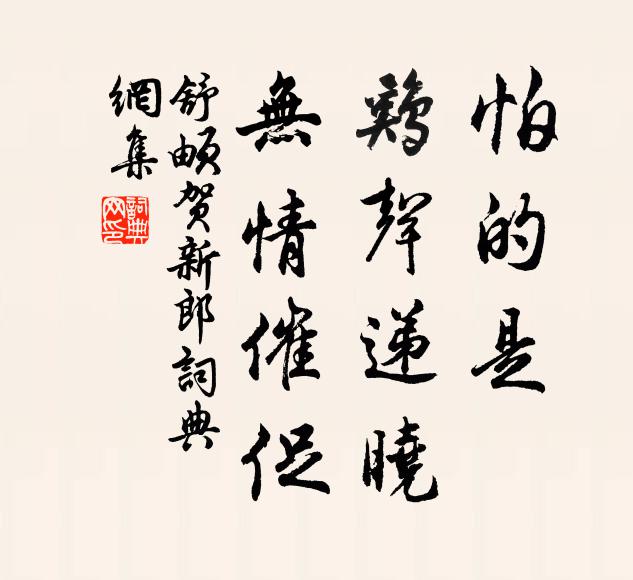 怕的是
鷄聲递曉
無情催促
舒頔贺新郎詞典
網集
詞典
网印